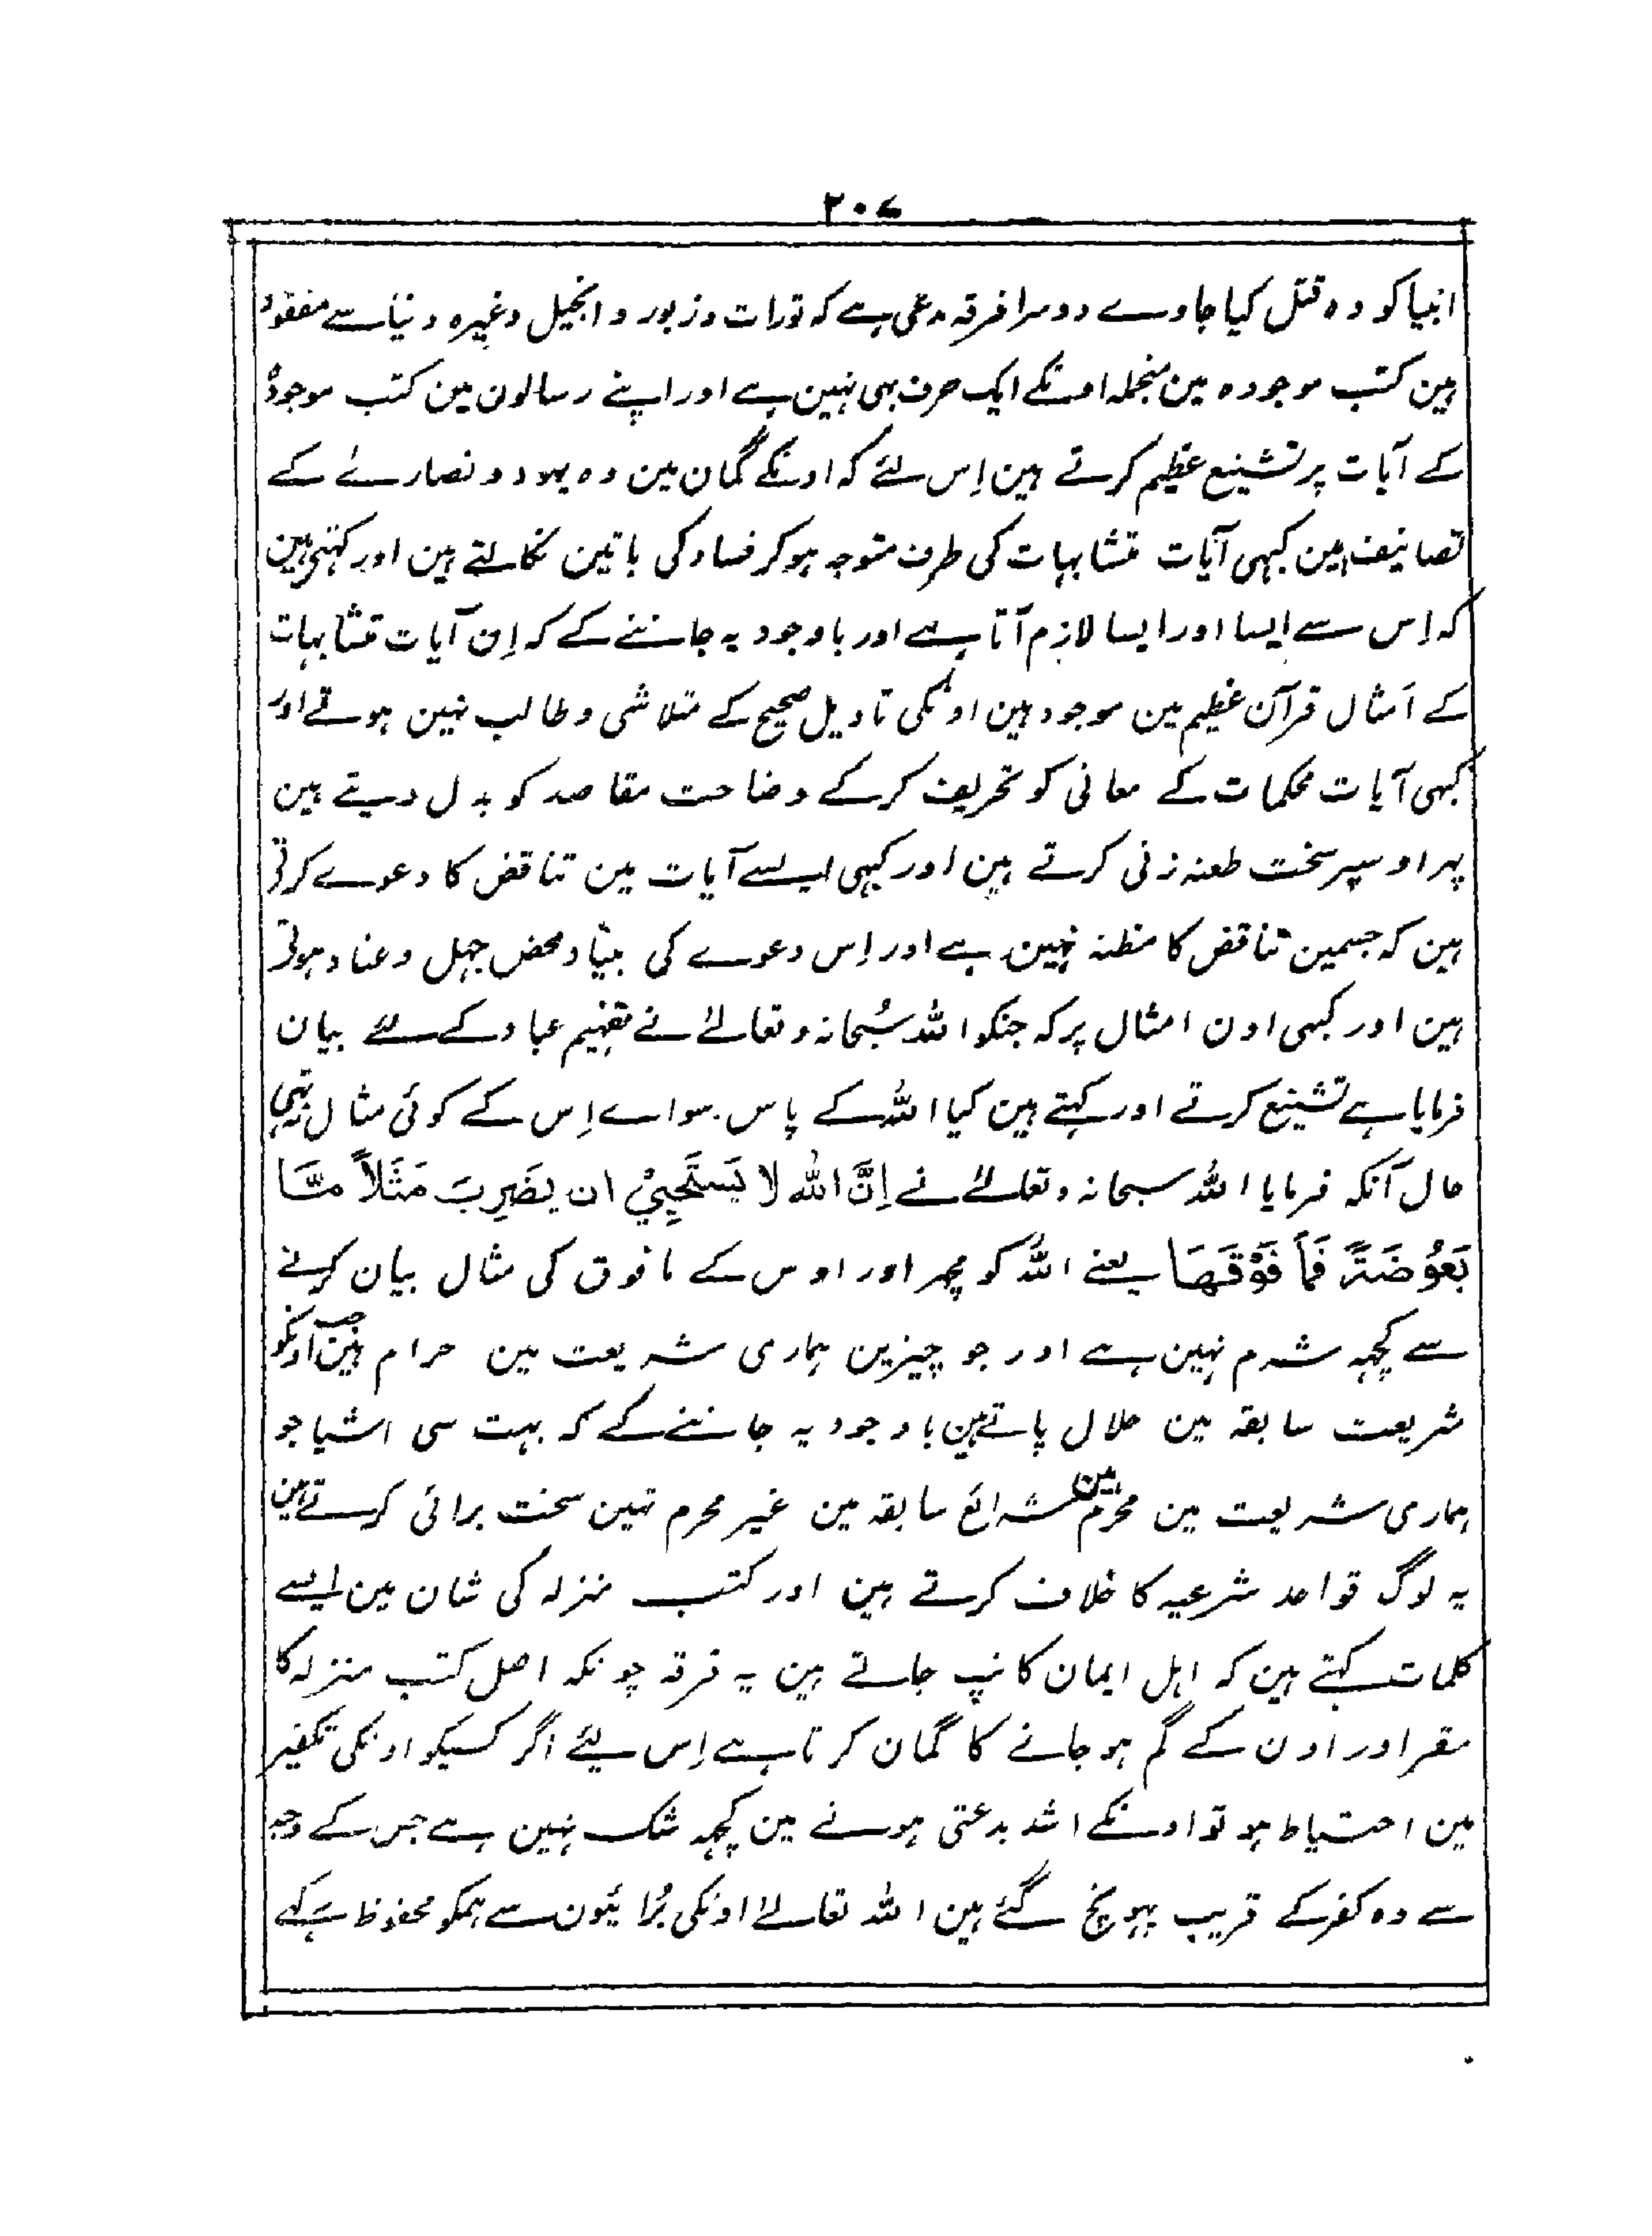 ۲۰۷
انبیا کو وہ قتل کیا جاوے دوسرا فرقہ مدعی ہے کہ تورات و زبور و انجیل وغیرہ دنیا سے مفقود
ہین کتب موجودہ مین منجملہ اونکے ایک حرف بہی نہین ہے اور اپنے رسالون مین کتب موجودہ
کے آیات پر تشنیع عظیم کرتے ہین اِس لئے کہ اونکے گمان مین وہ یہود و نصارےٰ کے
تصانیف ہین کبہی آیات متشابہات کی طرف متوجہ ہو کر فساد کی باتین نکالتے ہین اور کہتے ہین
کہ اِس سے ایسا اور ایسا لازم آتا ہے اور باوجود یہ جاننے کے کہ اِن آیات متشابہات
کے اَمثال قرآن عظیم مین موجود ہین اونکی تاویل صحیح کے متلاشی و طالب نہین ہوتے اور
کبہی آیات محکمات کے معانی کو تحریف کر کے وضاحت مقاصد کو بدل دیتے ہین
پہر اوسپر سخت طعنہ زنی کرتے ہین اور کبہی ایسے آیات مین تناقض کا دعوے کرتی
ہین کہ جسمین تناقض کا مظنہ نہین ہے اور اِس دعوے کی بنیاد محض جہل و عناد ہوتی
ہین اور کبہی اون امثال پر کہ جنکو اللہ سُبحانہ و تعالےٰ نے تفہیم عباد کے لئے بیان
فرمایا ہے تشنیع کرتے اور کہتے ہین کیا اللہ کے پاس سواے اِس کے کوئی مثال نہ تہی
حال آنکہ فرمایا اللہ سبحانہ و تعالےٰ نے اِنَّ اللہ لا یَستَحیِیْ ان یضَرِبَ مَثَلاً مَّا
بَعُوْضَۃً فَمَا فَوْقَھَا یعنے اللہ کو مچہر اور اوس کے مافوق کی مثال بیان کرنے
سے کچہہ شرم نہین ہے اور جو چیزین ہماری شریعت مین حرام ہین جب اونکو
شریعت سابقہ مین حلال پاتے ہین باوجود یہ جاننے کے کہ بہت سی اشیا جو
ہماری شریعت مین محرم ہین شرائع سابقہ مین غیر محرم تہین سخت برائی کرتے ہین
یہ لوگ قواعد شرعیہ کا خلاف کرتے ہین اور کتب منزلہ کی شان مین ایسے
کلمات کہتے ہین کہ اہل ایمان کانپ جاتے ہین یہ فرقہ چونکہ اصل کتب منزلہ کا
مقر اور اون کے گم ہو جانے کا گمان کرتا ہے اِس لیئے اگر کسیکو اونکی تکفیر
مین احتیاط ہو تو اونکے اشد بدعتی ہونے مین کچہہ شک نہین ہے جس کے وجہ
سے وہ کفر کے قریب پہونچ گئے ہین اللہ تعالےٰ اونکی بُرائیون سے ہمکو محفوظ رکہے